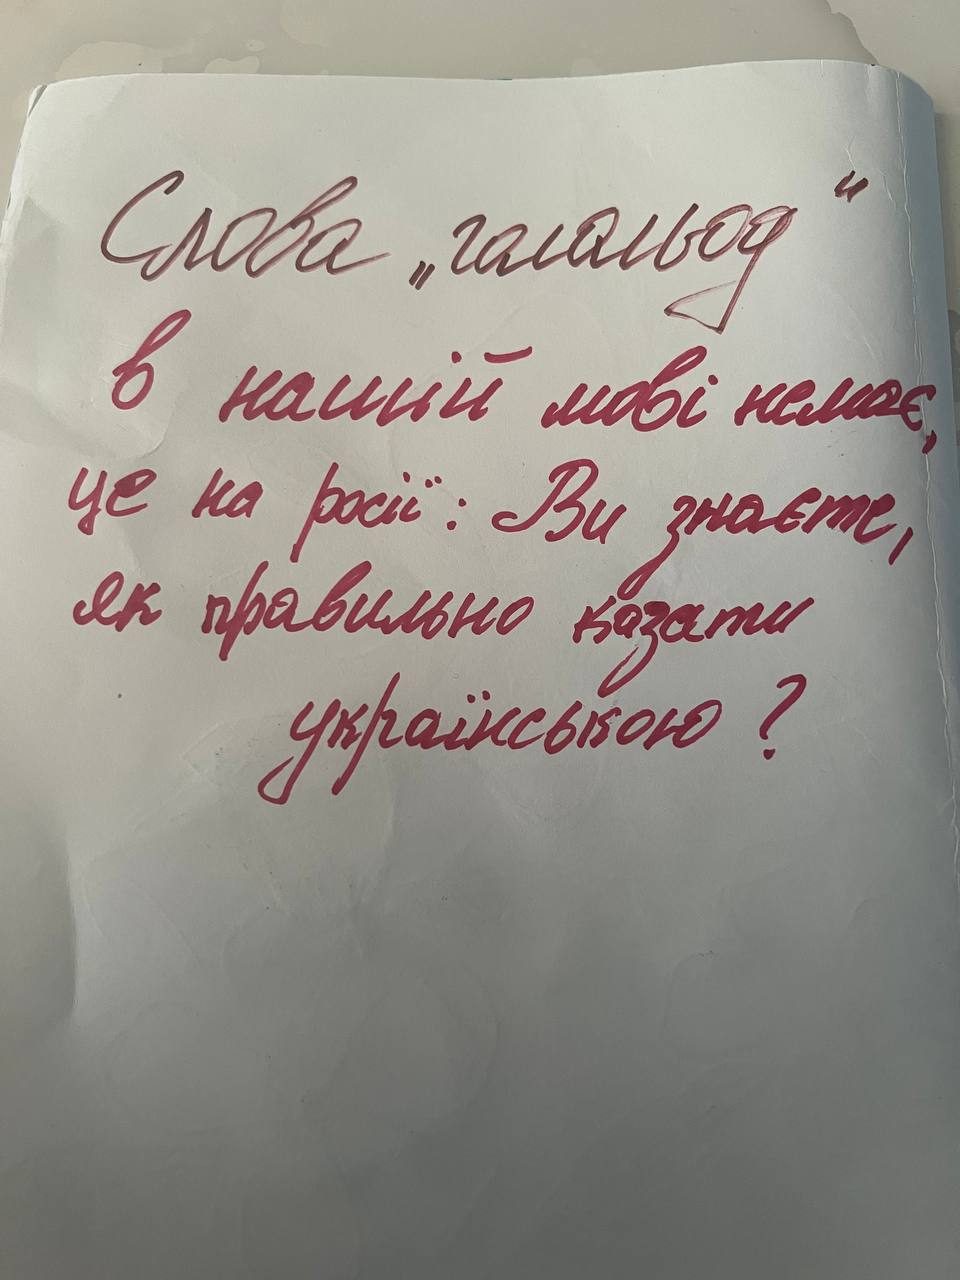 Слова „галальод“
в нашій мові немає,
це на росії: Ви знаєте,
як правильно казати
українською?